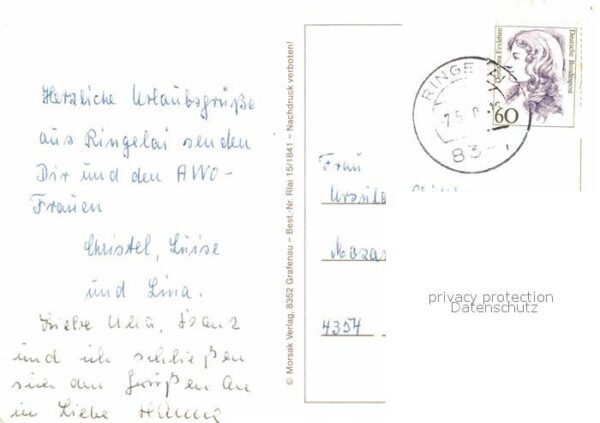 Herzliche Urlaubsgrüße
aus Ringelai senden
Dir und den AWO-
Frauen
Christel, Luise
und Lina.
Liebe Ulla, Franz
und ich schließen
uns den Grüßen an
in Liebe Hanna
© Morsak Verlag, 8352 Grafenau – Best.-Nr. Rlai 15/1841 – Nachdruck verboten!
Deutsche Bundespost
60
RINGE
Frau
4354
privacy protection
Datenschutz